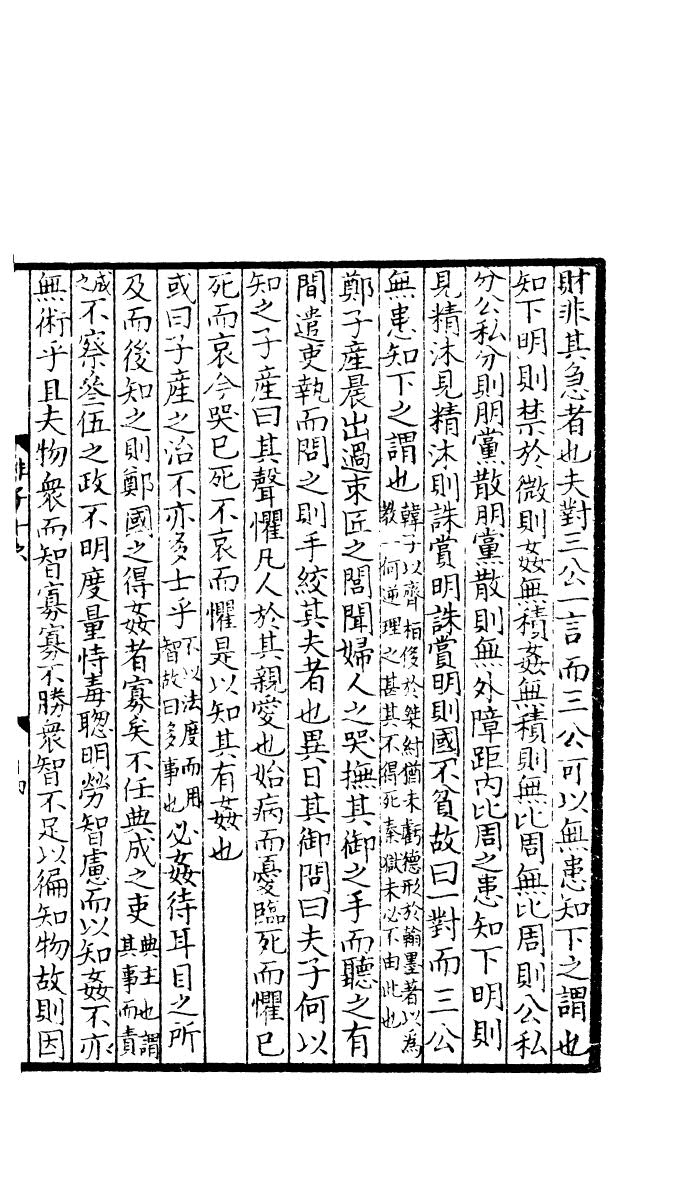 財非其急者也夫對三公一言而三公可以無患知下之謂也
知下明則禁於微禁於微則姦無積姦無積則無比周無比周則公私
分公私分則朋黨散朋黨散則無外障距內比周之患知下明則
見精沐見精沐則誅賞明誅賞明則國不貧故曰一對而三公
無患知下之謂也韓子以齊桓侈於桀紂猶未虧德形於翰墨著以爲教一何逆理之甚其不得死秦獄未必不由此也
鄭子產晨出過束匠之閭聞婦人之哭撫其御之手而聽之有
間遣吏執而問之則手絞其夫者也異日其御問曰夫子何以
知之子產曰其聲懼凡人於其親愛也始病而憂臨死而懼已
死而哀今哭已死不哀而懼是以知其有姦也
或曰子產之治不亦多士乎不以法度而用智故曰多事也必姦待耳目之所
及而後知之則鄭國之得姦者寡矣不任典成之吏典主也謂其事而責
成之不察叄伍之政不明度量恃毒聰明勞智慮而以知姦不亦
無術乎且夫物衆而智寡寡不勝衆智不足以徧知物故則因